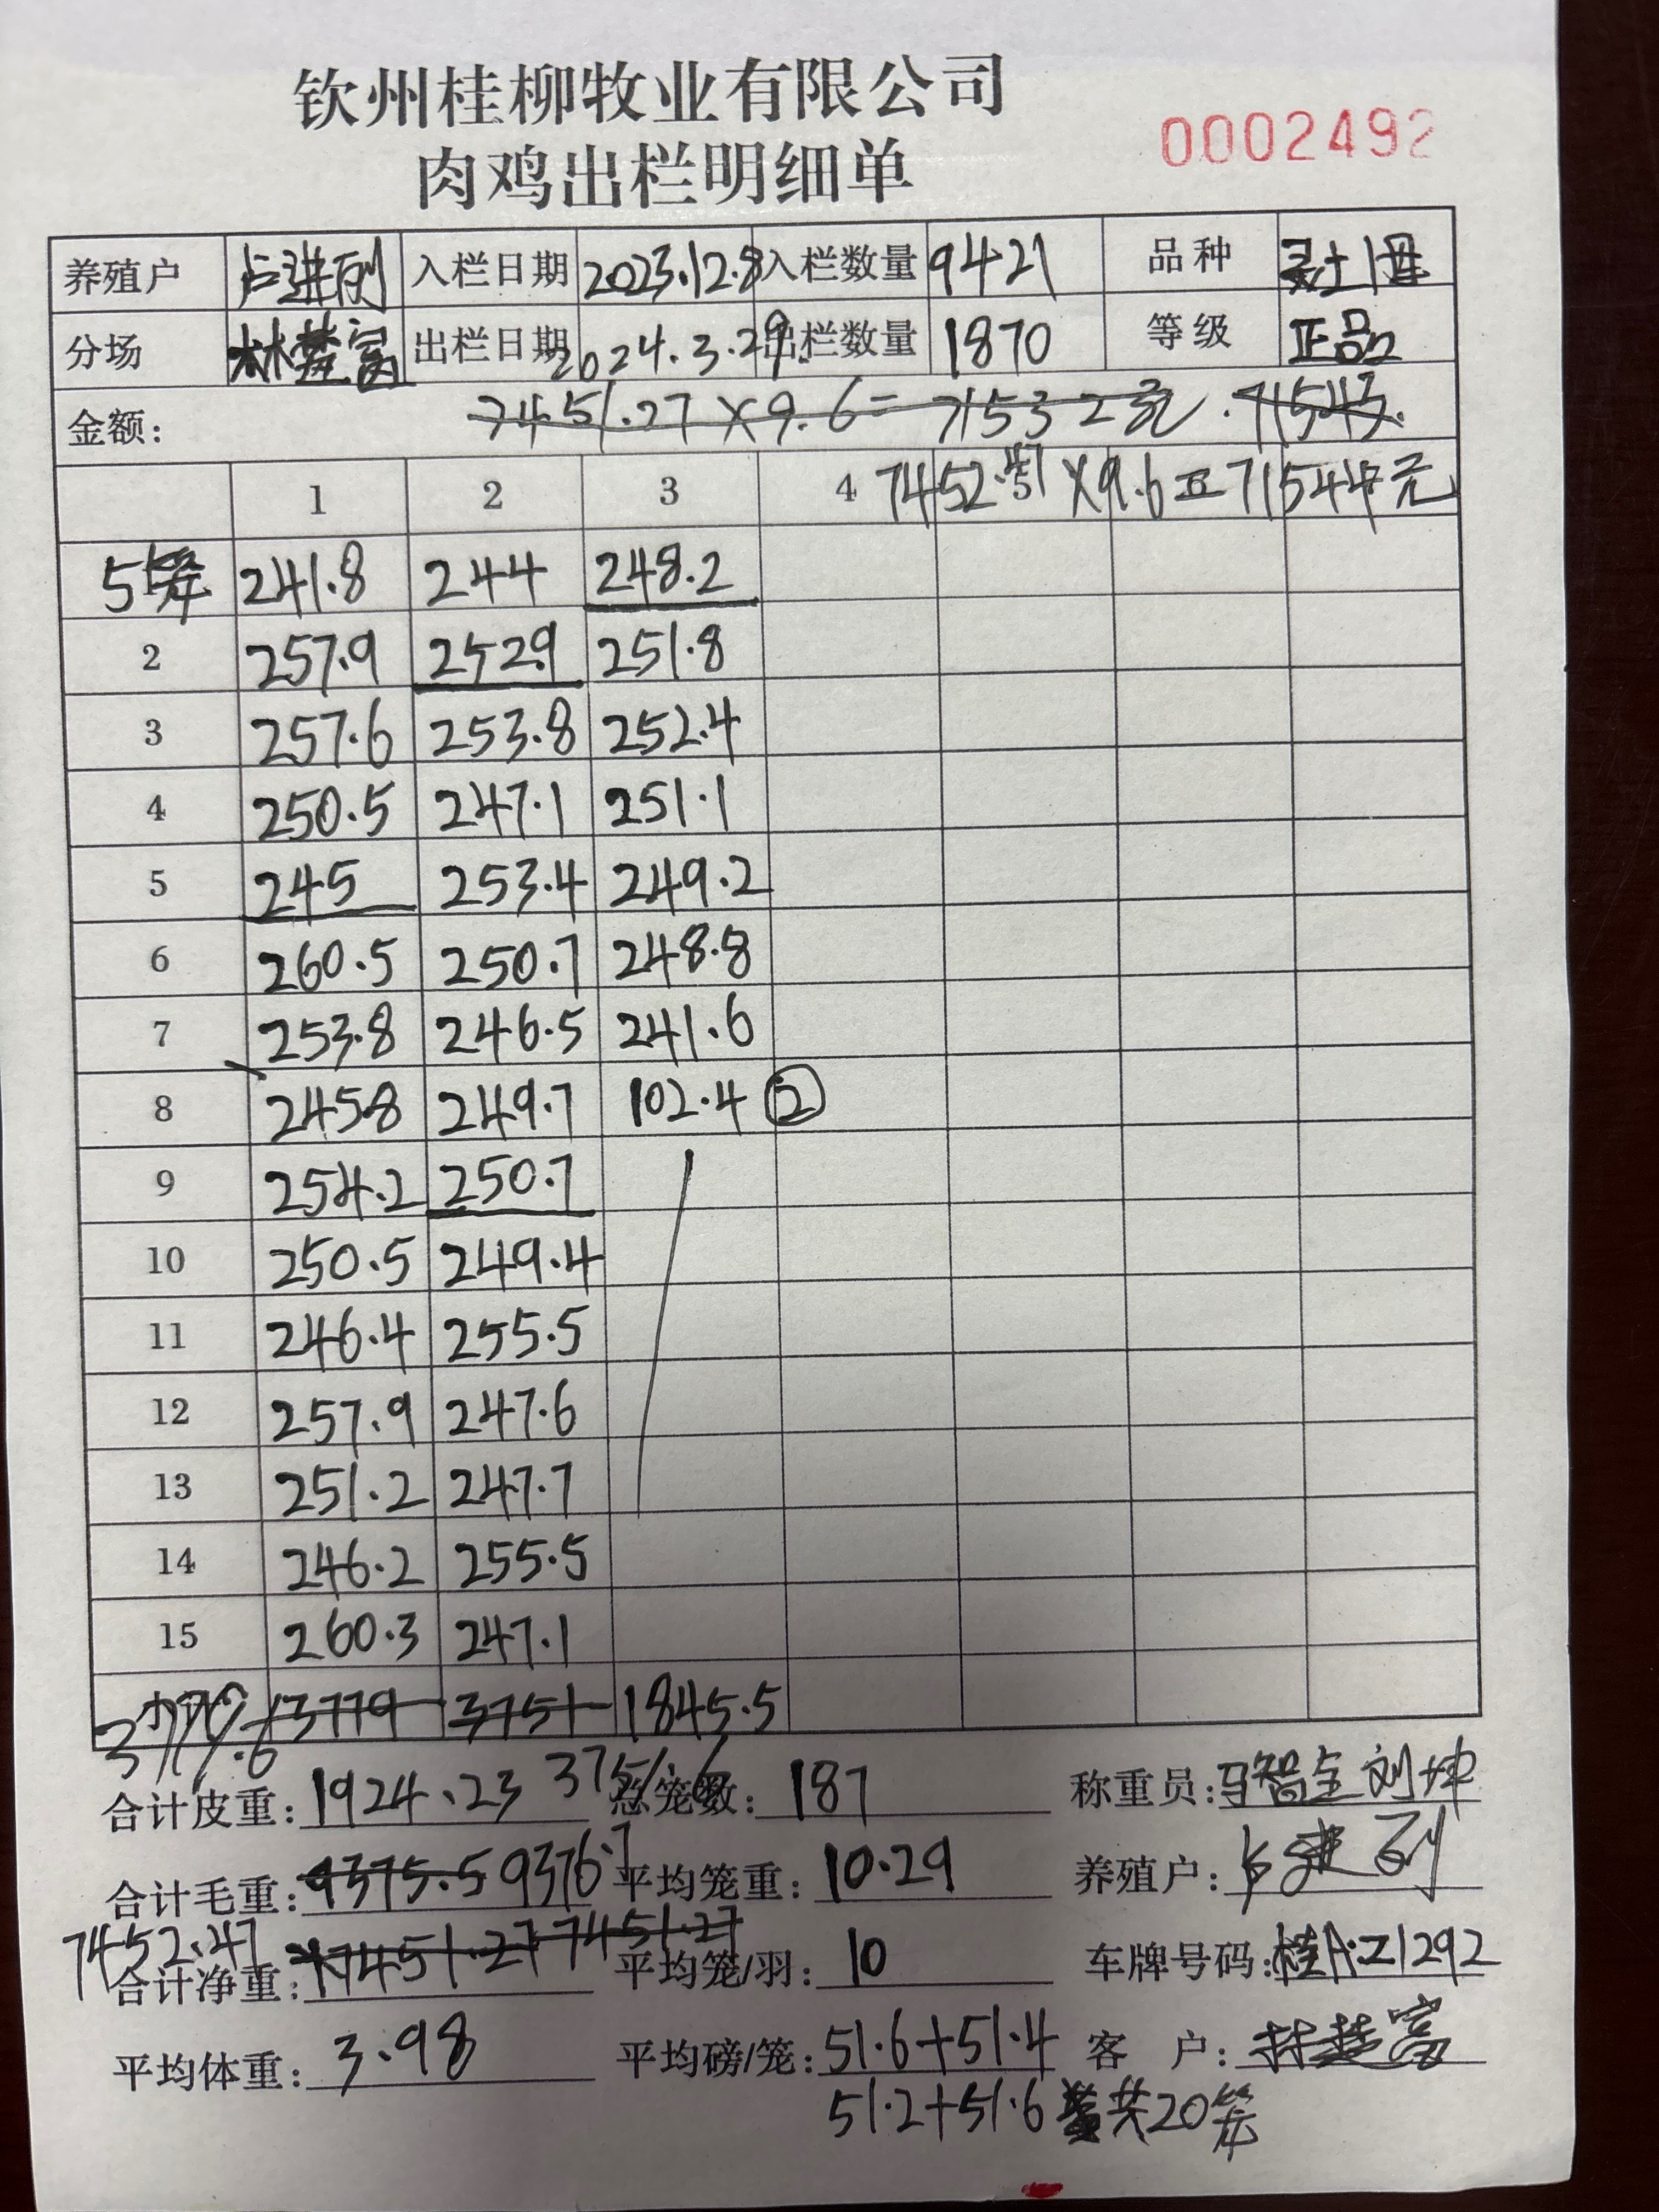 钦州桂柳牧业有限公司
肉鸡出栏明细单
0002492
养殖户 卢进列 入栏日期 2023.12.8 入栏数量 9421 品种 土
分场 林楚富 出栏日期 2024.3.29. 出栏数量 1870 等级 正品
金额: 7451.27×9.6=71532元.
1 2 3 4 7452.47×9.6=71544元
5笼 241.8 244 248.2
2 257.9 252.9 251.8
3 257.6 253.8 252.4
4 250.5 247.1 251.1
5 245 253.4 249.2
6 260.5 250.7 248.8
7 253.8 246.5 241.6
8 245.8 249.7 102.4 ②
9 254.2 250.7
10 250.5 249.4
11 246.4 255.5
12 257.9 247.6
13 251.2 247.7
14 246.2 255.5
15 260.3 247.1
小计 3779 3751 1845.5
3779.6 3751.6
合计皮重: 1924.23 总笼数: 187 称重员: 刘坤
合计毛重: 9375.5 9376.7 平均笼重: 10.29 养殖户: 卢进列
7452.47
合计净重: 7451.27 7451.27 平均笼/羽: 10 车牌号码: 桂A·Z1292
平均体重: 3.98 平均磅/笼: 51.6+51.4 客 户: 林楚富
51.2+51.6 共20笼